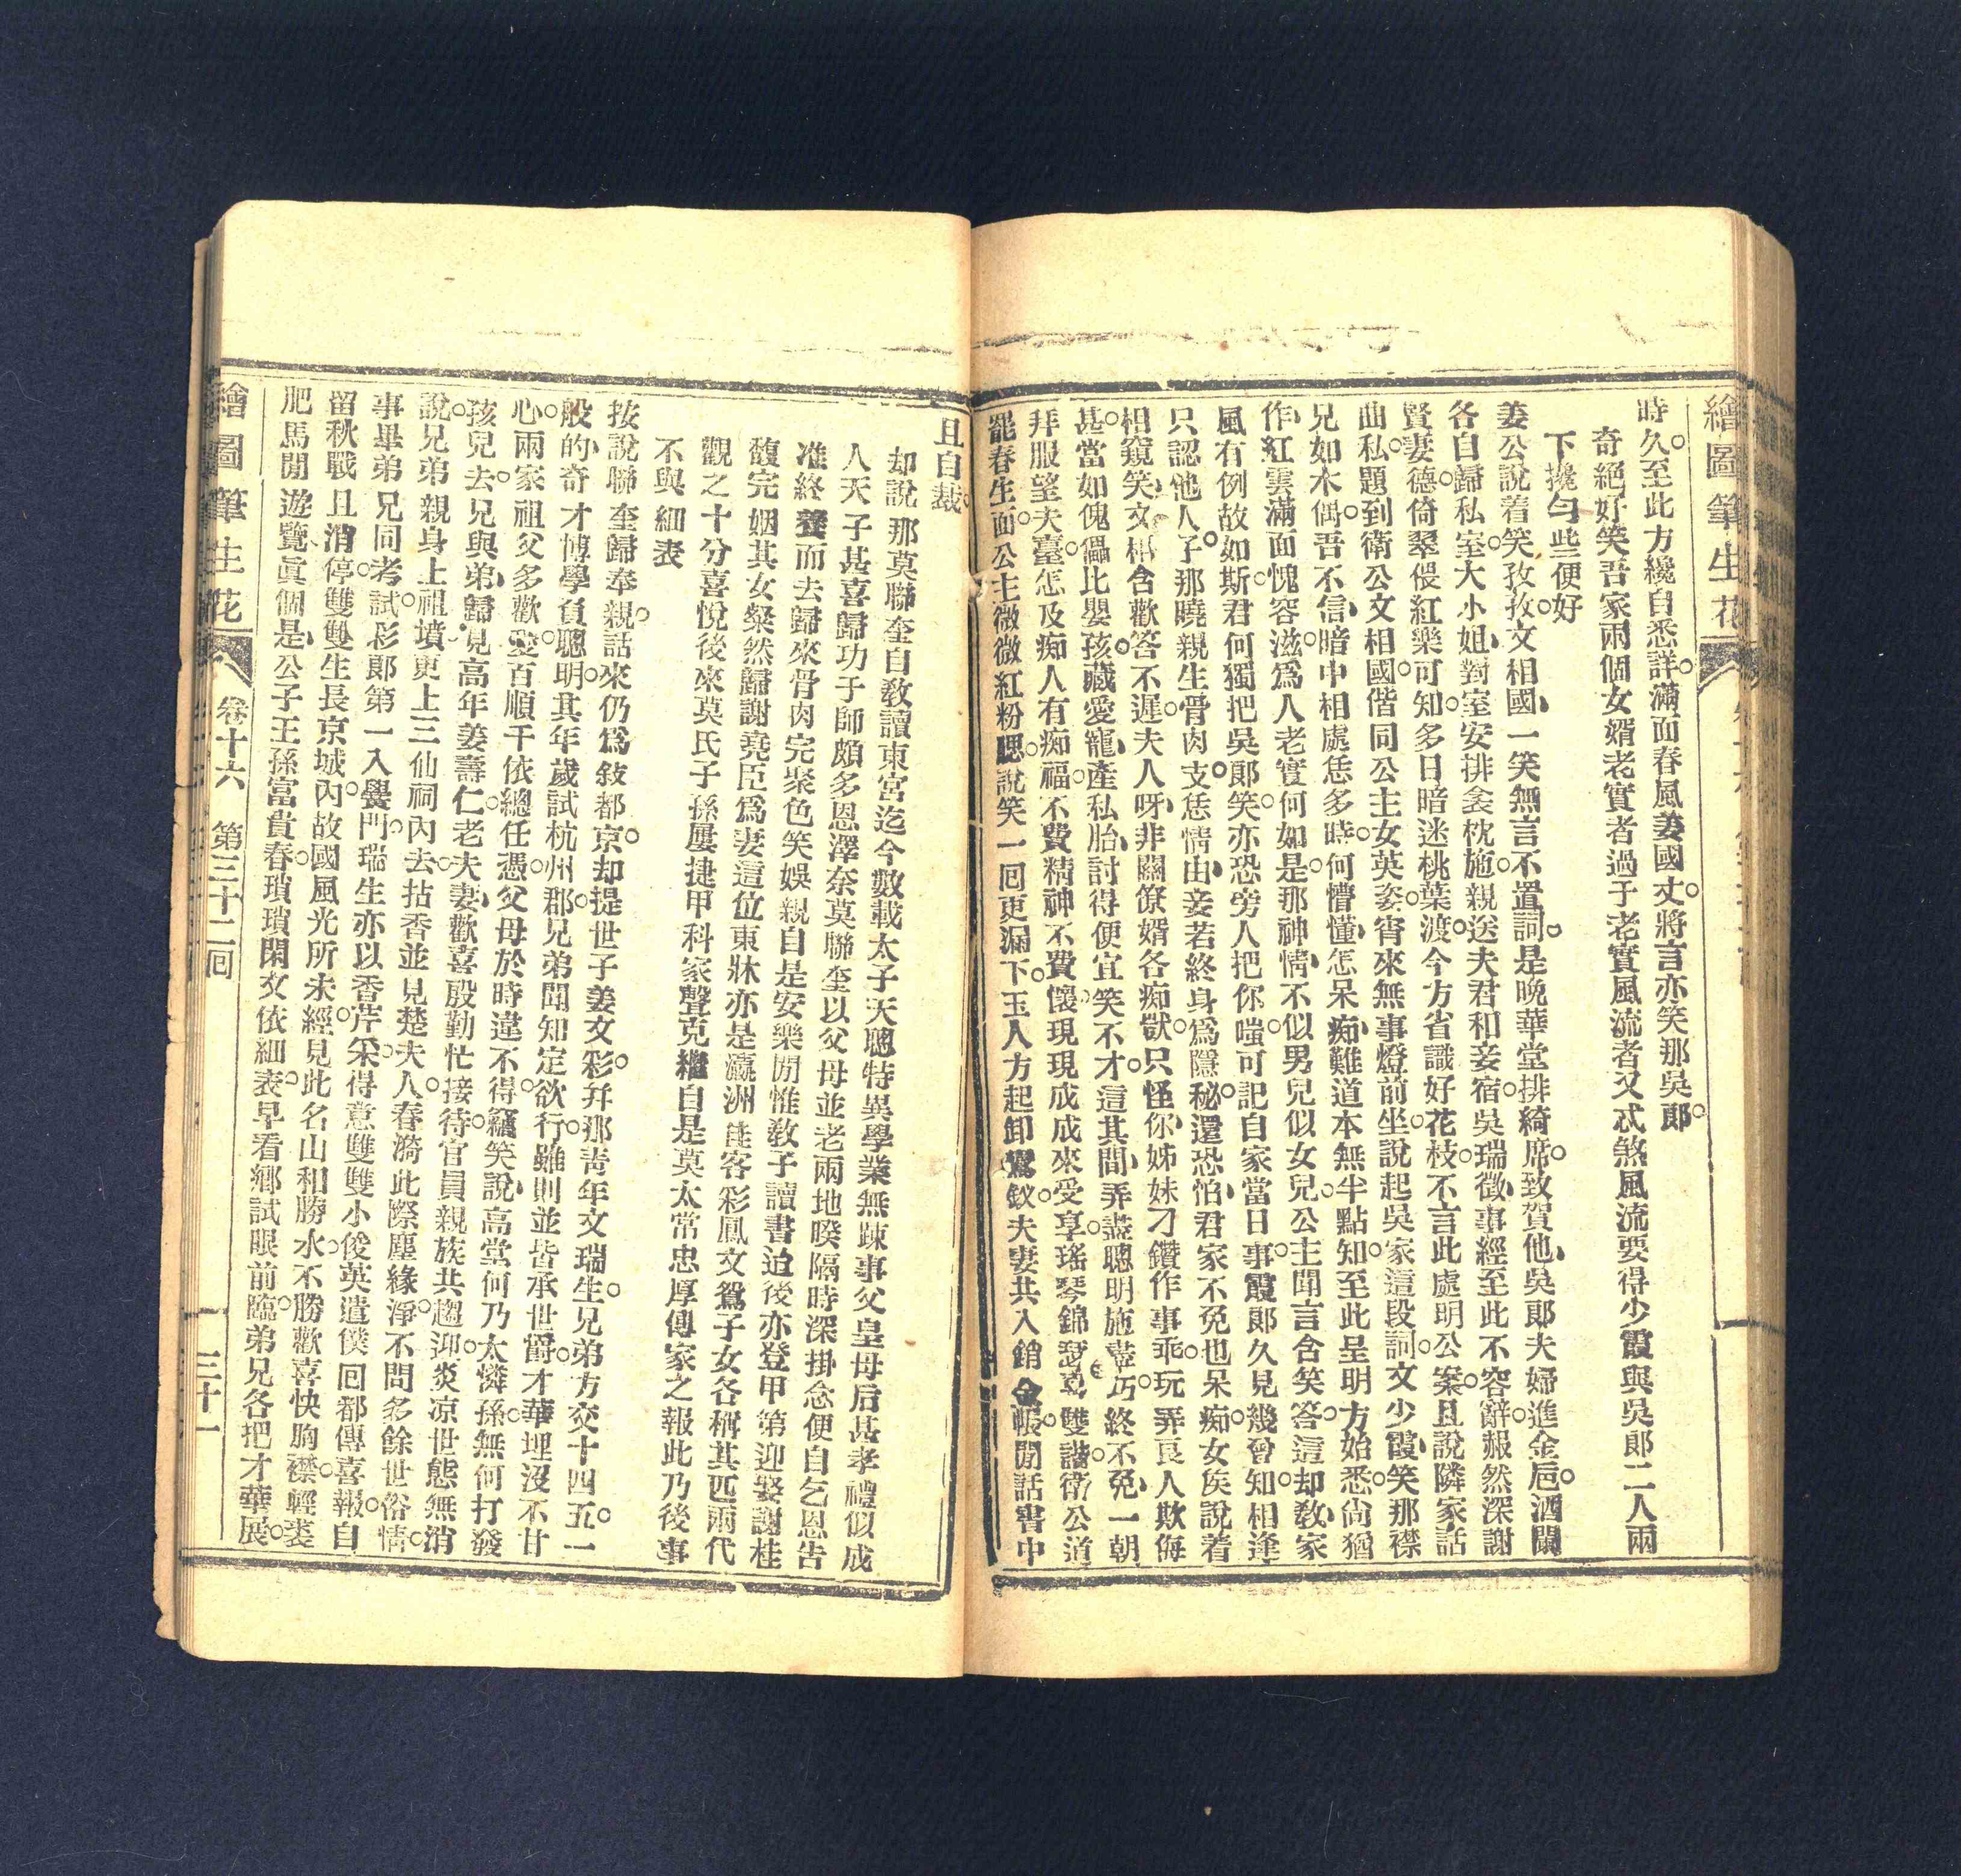 繪圖筆生花
時久。至此方纔自悉詳。滿面春風姜國丈。將言亦笑那吳郎。
奇絕好笑吾家兩個女婿老實者過于老實風流者又忒煞風流要得少霞與吳郎二人兩
下攙勻些便好
姜公說着笑孜孜。文相國、一笑無言不置詞。是晚華堂排綺席。致賀他、吳郎夫婦進金卮。酒闌
各自歸私室。大小姐、對室安排衾枕施。親送夫君和妾宿。吳瑞徵、事經至此不容辭。赧然深謝
賢妻德。倚翠偎紅樂可知。多日暗迷桃葉渡。今方省識好花枝。不言此處明公案。且說隣家話
曲私。題到衛公文相國。偕同公主女英姿。宵來無事燈前坐。說起吳家這段詞。文少霞、笑那襟
兄如木偶。吾不信、暗中相處恁多時。何懵懂、怎呆痴、難道本無半點知。至此呈明方始悉。尚猶
作、紅雲滿面愧容滋。爲人老實何如是。那神情、不似男兒似女兒。公主聞言含笑答。這却敎、家
風有例故如斯。君何獨把吳郎笑。亦恐旁人把你嗤。可記自家當日事。霞郎久見幾曾知。相逢
只認他人子。那曉親生骨肉支。恁情由、妾若終身爲隱秘。還恐怕、君家不免也呆痴。女侯說着
相窺笑。文相含歡答不遲。夫人呀、非關僚婿各痴獃。只怪你、姊妹刁鑽作事乖。玩弄良人欺侮
甚。當如傀儡比嬰孩。藏愛寵、產私胎、討得便宜笑不才。這其間、弄盡聰明施盡巧。終不免、一朝
拜服望夫臺。怎及痴人有痴福。不費精神不費懷。現現成成來受享。瑤琴錦瑟雙諧。衛公道
罷春生面。公主微微紅粉腮。說笑一回更漏下。玉人方起卸鸞釵。夫妻共入銷金帳。閒話書中
且白裁。
却說那莫聯奎自敎讀東宮迄今數載太子天聰特異學業無疎事父皇母后甚孝禮似成
人天子甚喜歸功于師頗多恩澤奈莫聯奎以父母並老兩地暌隔時深掛念便自乞恩告
准終養而去歸來骨肉完聚色笑娛親自是安樂閒惟敎子讀書迨後亦登甲第迎娶謝桂
馥完姻其女粲然歸謝堯臣爲妻這位東牀亦是瀛洲佳客彩鳳文鴛子女各稱其匹兩代
觀之十分喜悅後來莫氏子孫屢捷甲科家聲克繼自是莫太常忠厚傳家之報此乃後事
不與細表
按說聯奎歸奉親。話來仍爲敘都京。却提世子姜文彩。幷那靑年文瑞生。兄弟方交十四五。一
般的、奇才博學負聰明。其年歲試杭州郡。兄弟聞知定欲行。雖則並皆承世爵。才華埋沒不甘
心。兩家祖父多歡愛。百順千依總任憑。父母於時違不得。竊笑說、高堂何乃太憐孫。無何打發
孩兒去。兄與弟、歸見高年姜壽仁。老夫妻、歡喜殷勤忙接待。官員親族共趨迎。炎凉世態無消
說。兄弟親身上祖墳。更上三仙祠內去。拈香並見楚夫人。春漪此際塵緣淨。不問多餘世俗情。
事畢弟兄同考試。彩郎第一入黌門。瑞生亦以香芹采。得意雙雙小俊英。遣僕回都傳喜報。自
留秋戰且消停。雙雙生長京城內。故國風光所未經。見此名山和勝水。不勝歡喜快胸襟。輕裘
肥馬閒遊覽。眞個是、公子王孫富貴春。瑣瑣閑文依細表。早看鄉試眼前臨。弟兄各把才華展。
繪圖筆生花 卷十六 第三十二回 三十一